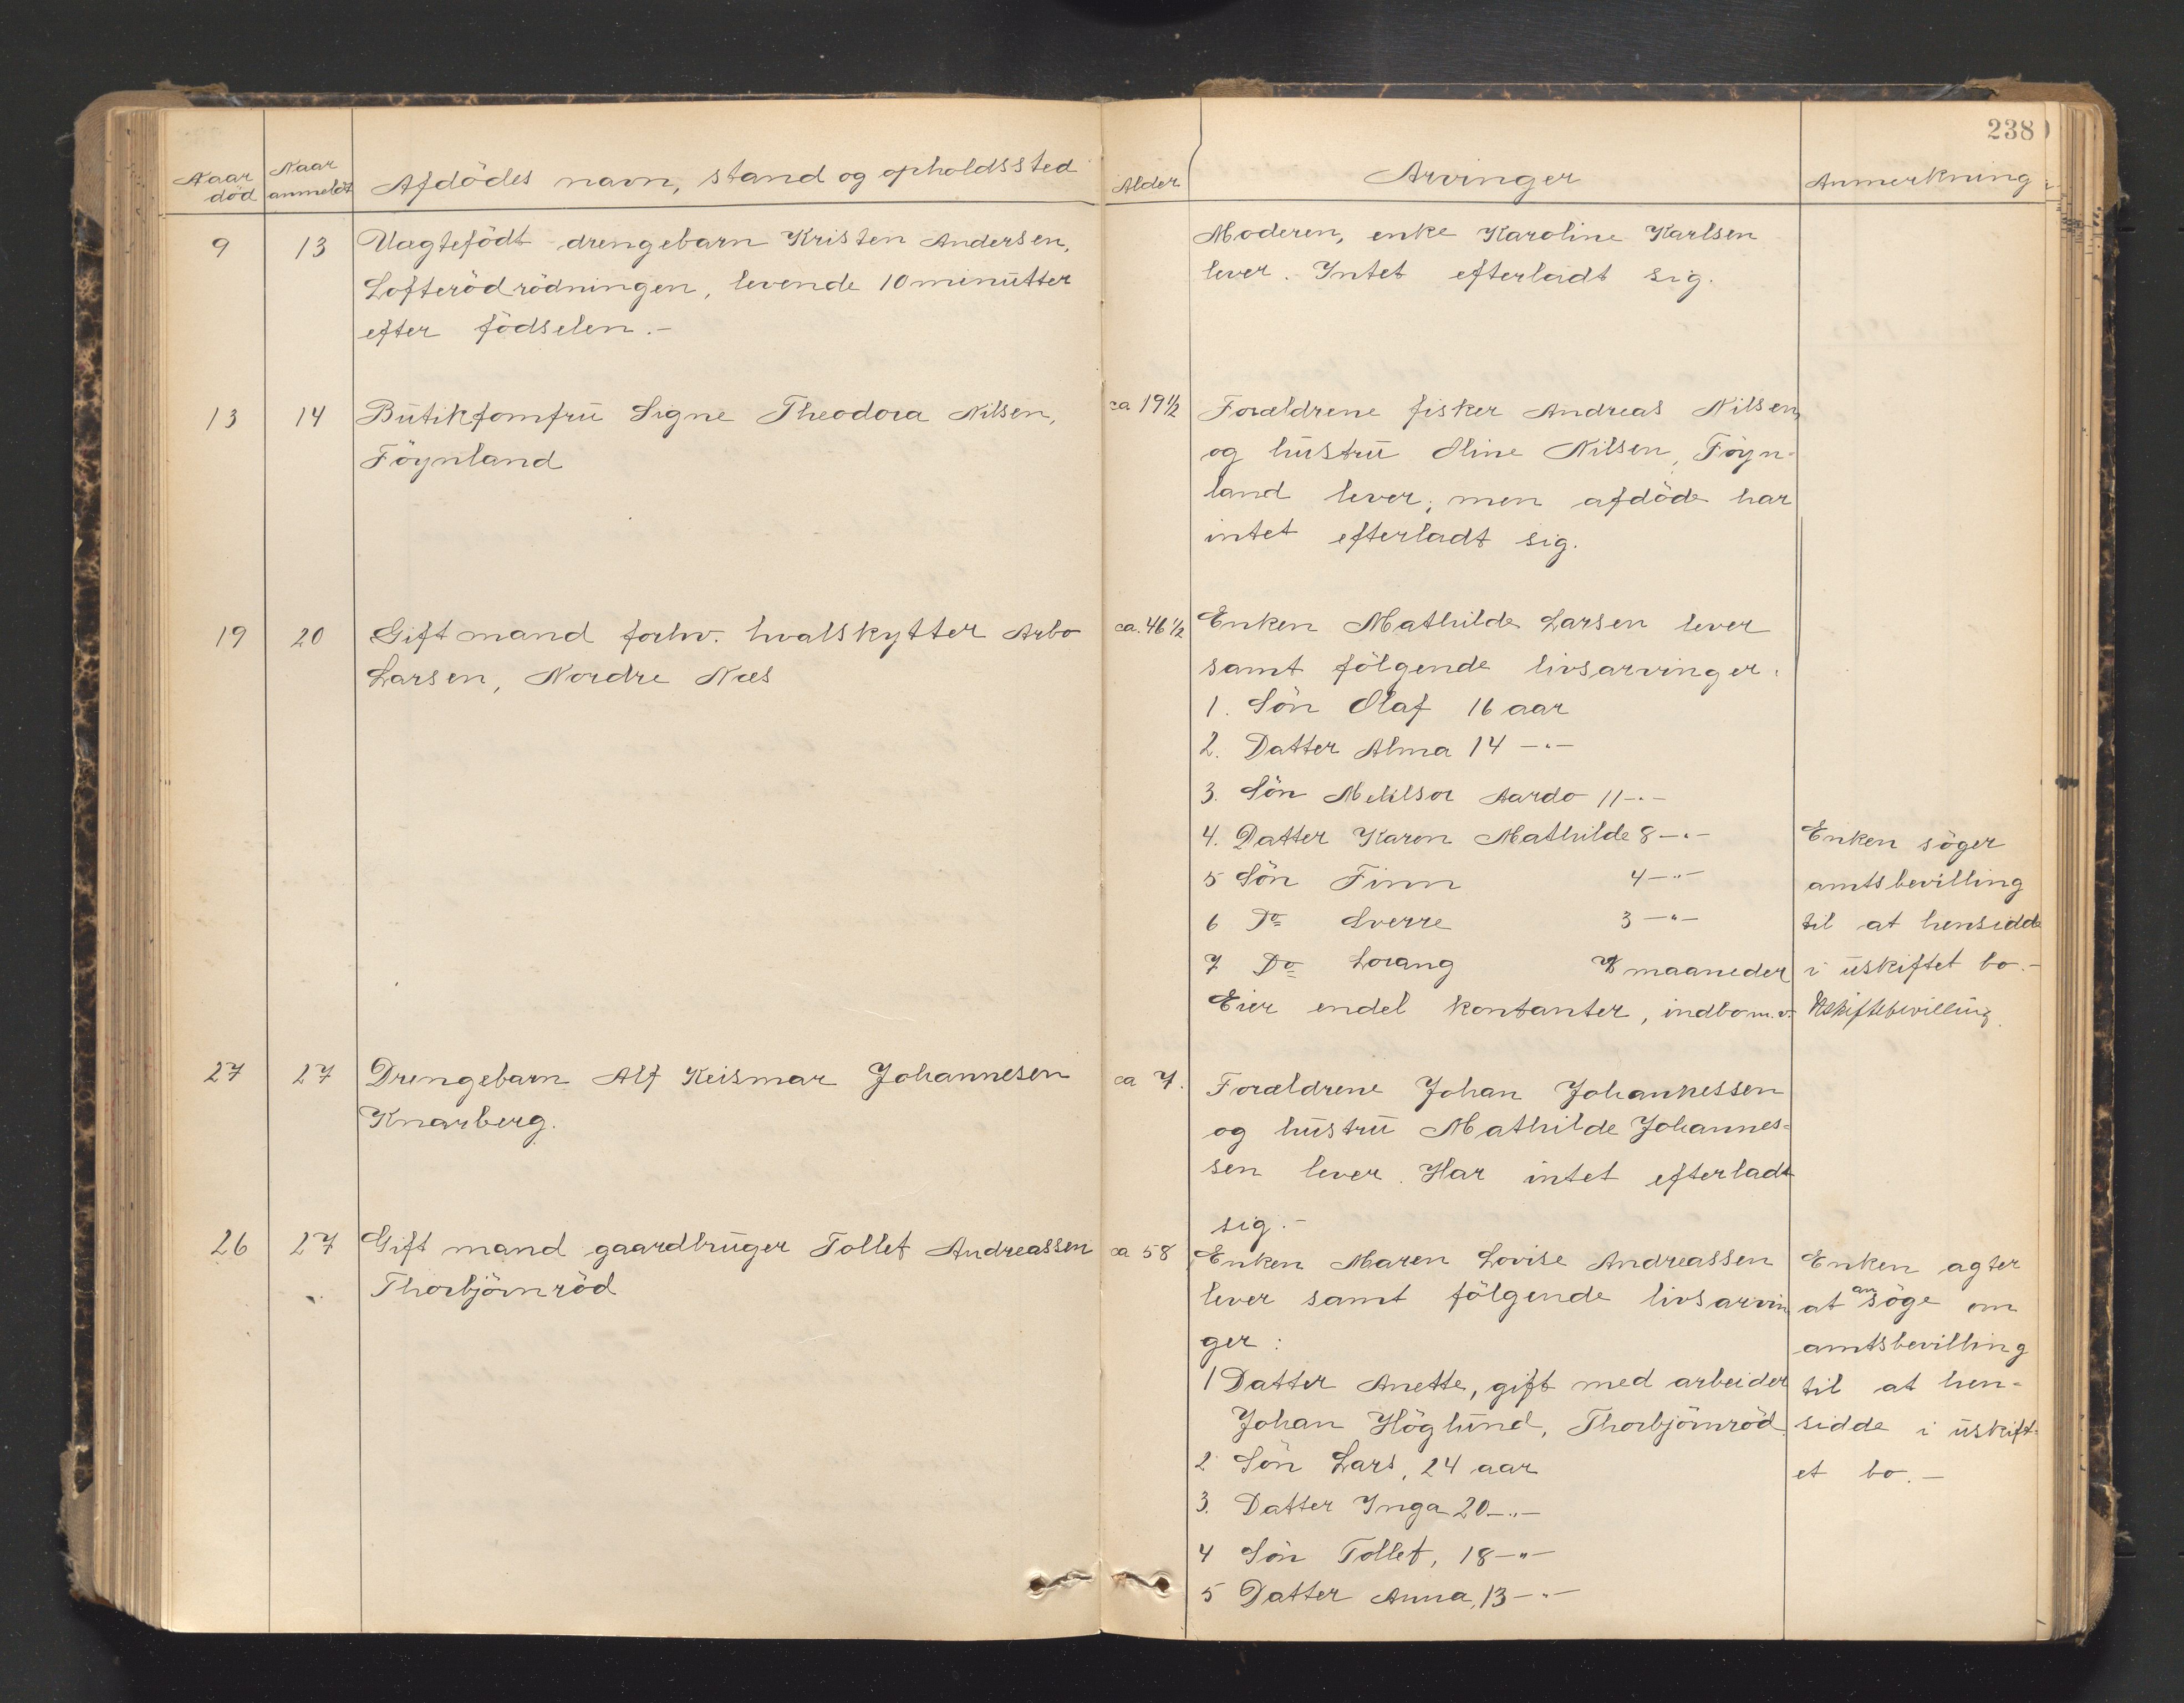 238
Naar død
Naar anmeldt
Afdödes navn, stand og opholdssted
Alder
Arvinger
Anmerkning
9 13 Uægtefödt drengebarn Kristen Andersen,
Lofterödrödningen, levende 10 minutter
efter födselen.-
Moderen, enke Karoline Karlsen
lever. Intet efterladt sig.
13 14 Butikjomfru Signe Theodora Nilsen,
Föynland
ca 19 1/2
Forældrene fisker Andreas Nilsen
og hustru Oline Nilsen, Föyn-
land lever, men afdöde har
intet efterladt sig.
19 20 Gift mand forhv. hvalskytter Arbo
Larsen, Nordre Næs
ca. 46 1/2
Enken Mathilde Larsen lever
samt fölgende livsarvinger.
1. Sön Olaf 16 aar
2. Datter Alma 14 -"-
3. Sön Melilsor Aardo 11 -"-
4. Datter Karen Mathilde 8 -"-
5 Sön Finn 4 -"-
6 Do Sverre 3 -"-
7 Do Lorang maaneder
Eier endel kontanter, indbo m.v.
Enken söger
amtsbevilling
til at hensidde
i uskiftet bo.-
Uskiftebevilling
27 27 Drengebarn Alf Keismar Johannesen
Knarberg.
ca 7.
Forældrene Johan Johannessen
og hustru Mathilde Johannes-
sen lever. Har intet efterladt
sig.-
26 27 Gift mand gaardbruger Tollef Andreassen
Thorbjörnröd
ca 58
Enken Maren Lovise Andreassen
lever samt fölgende livsarvin
ger:
1 Datter Anette, gift med arbeider
Johan Höglund, Thorbjörnröd
2 Sön Lars, 24 aar
3. Datter Inga 20 -"-
4 Sön Tollef, 18 -"-
5 Datter Anna, 13 -"-
Enken agter
at ansöge om
amtsbevilling
til at hen-
sidde i uskift-
et bo.-